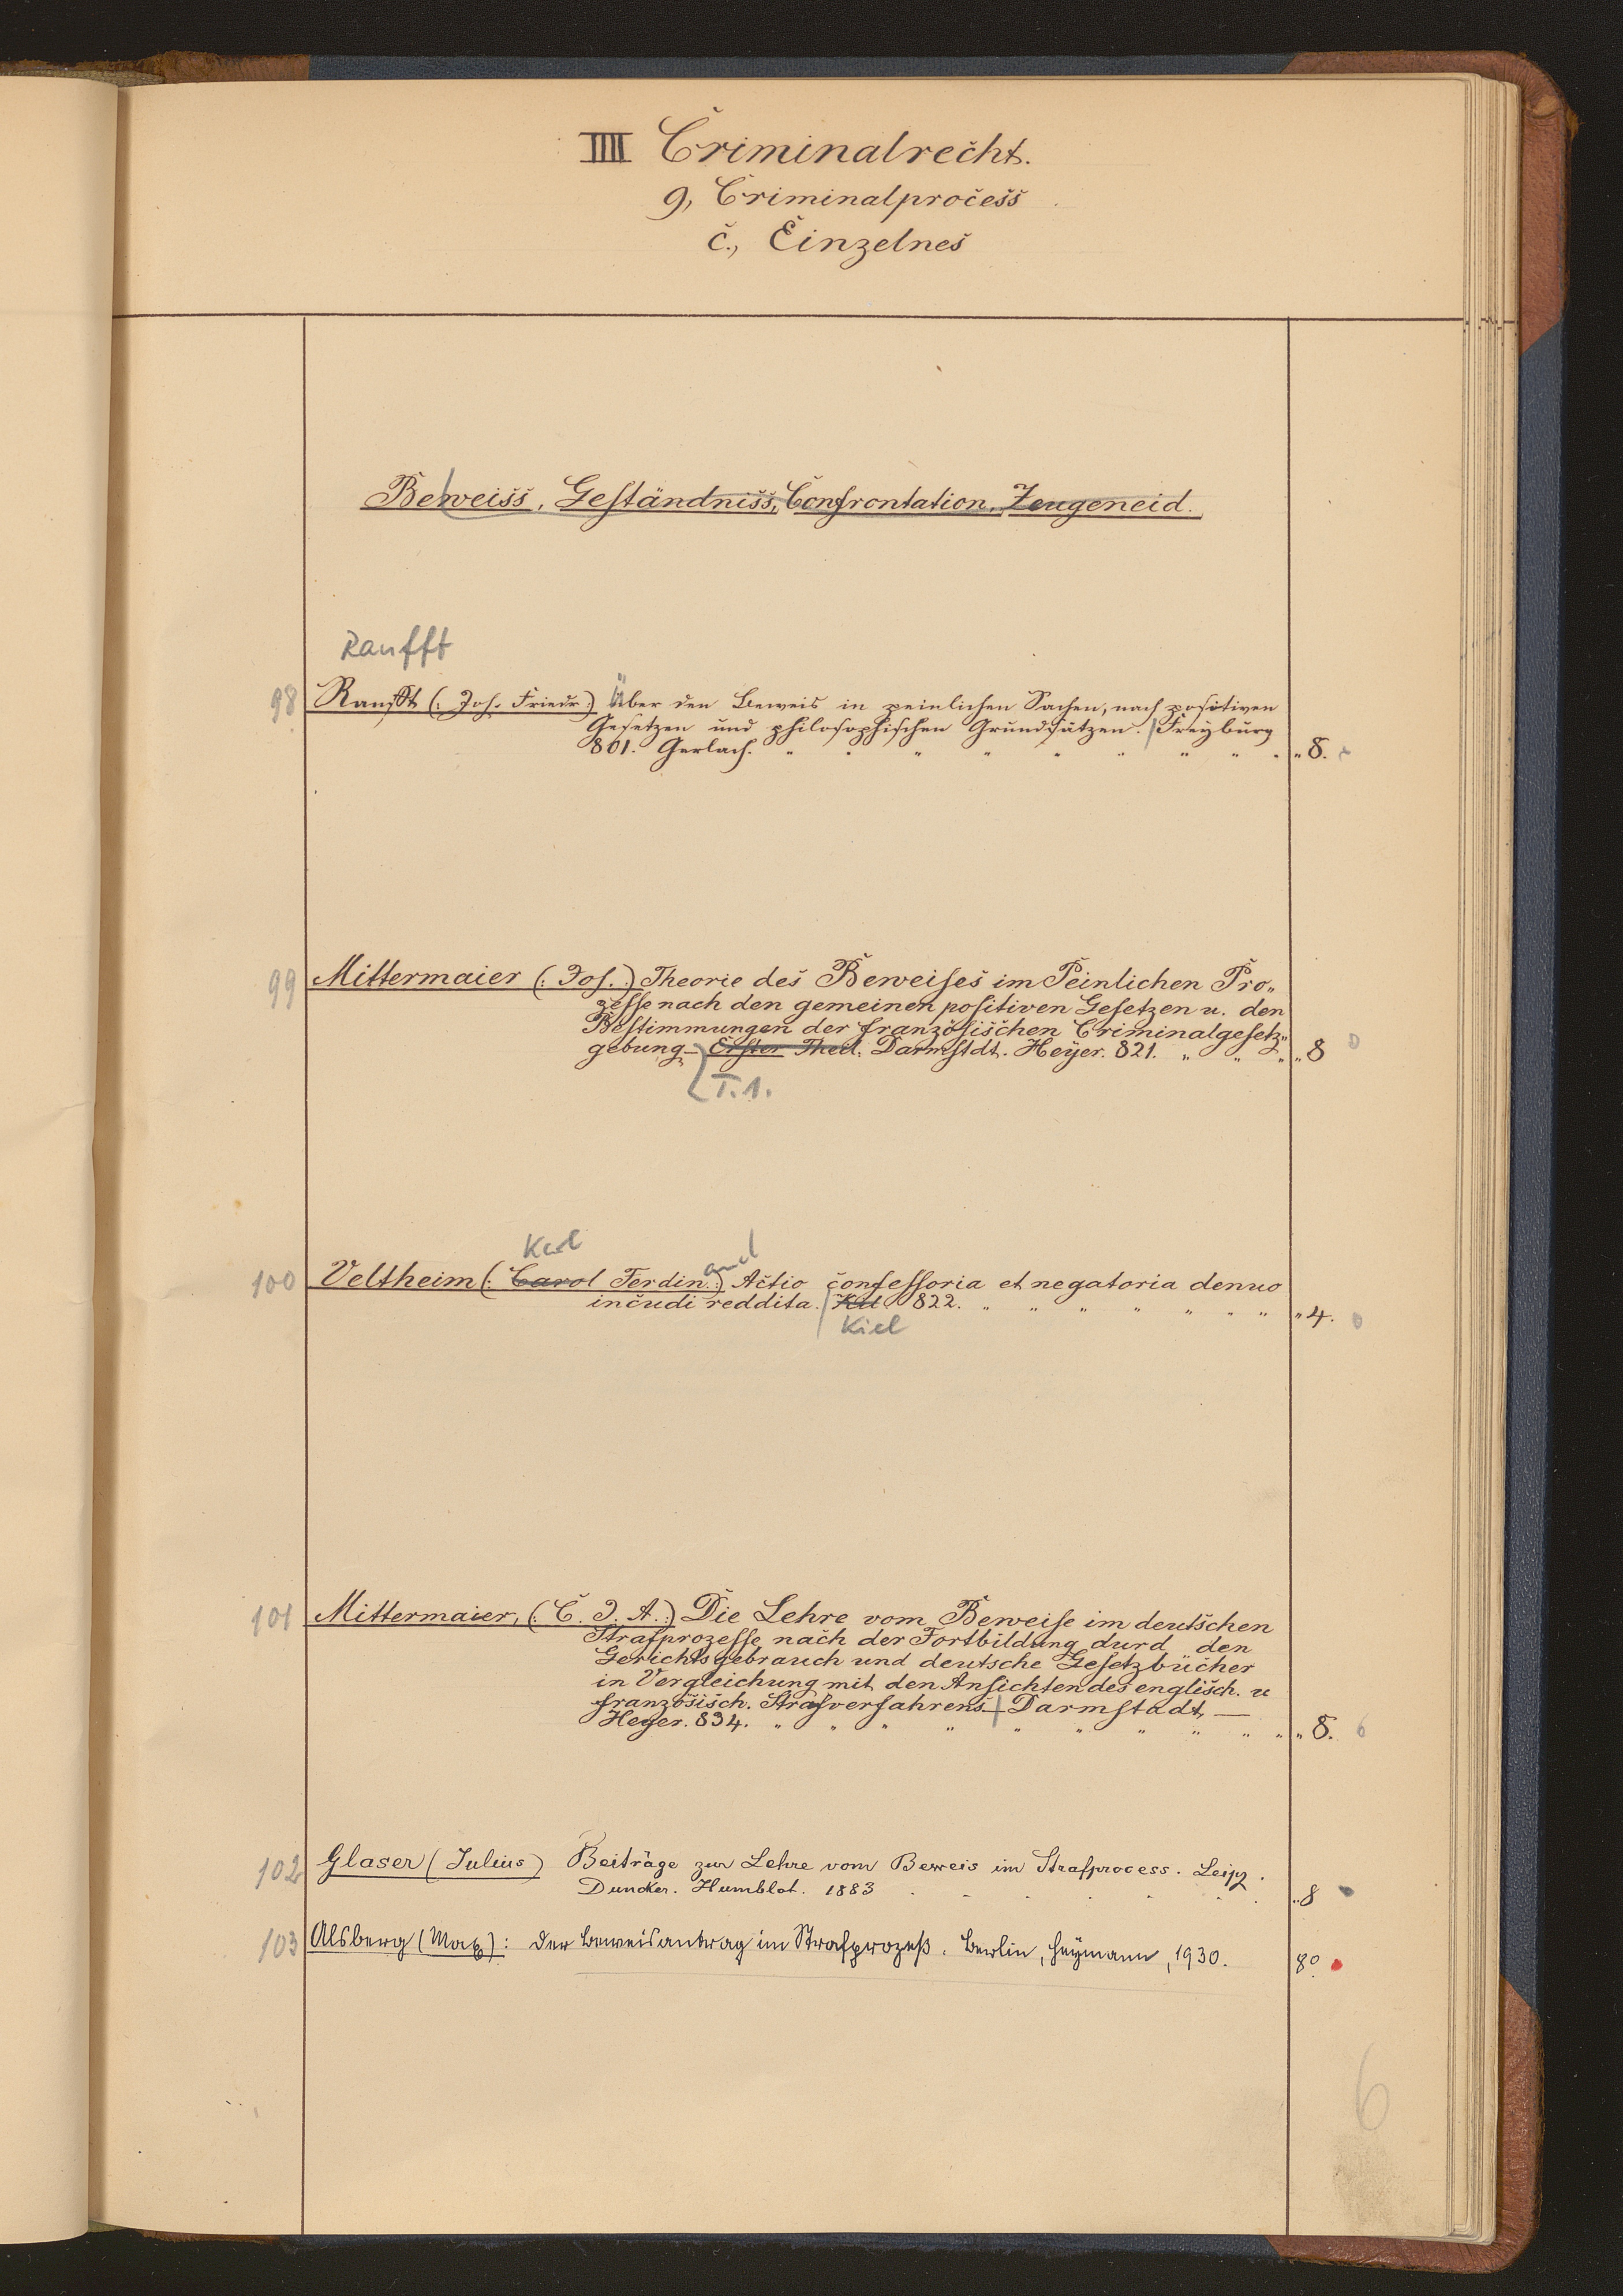 IIII Criminalrecht.
9, Criminalprocess
c., Einzelnes
Beweiss, Geständniss, Confrontation, Zeugeneid.
Raufft
98 Raufft (: Joh. Friedr :) Über den Beweis in peinlichen Sachen, nach positiven
Gesetzen und philosophischen Grundsätzen. Freyburg
801. Gerlach. " " " " " " " " " " 8.
99 Mittermaier (: Jos. :) Theorie des Beweises im Peinlichen Pro„
zesse nach den gemeinen positiven Gesetzen u. den
Bestimmungen der französischen Criminalgesetz„
gebung – Erster Theil. Darmstdt. Heyer. 821. " " " " 8
T. 1.
Karl and
100 Veltheim (: Carol Ferdin. :) Actio confessoria et negatoria denuo
incudi reddita. Kil 822. " " " " " " " " 4.
Kiel
101 Mittermaier, (: C. J. A. :) Die Lehre vom Beweise im deutschen
Strafprozesse nach der Fortbildung durd den
Gerichtsgebrauch und deutsche Gesetzbücher
in Vergleichung mit den Ansichten des englisch. u
französisch. Strafverfahrens – Darmstadt, —
Heyer. 834. " " " " " " " " " " 8.
102 Glaser (Julius) Beiträge zur Lehre vom Beweis im Strafprocess. Leipz.
Duncker. Humblot. 1883 . . . . . . " 8
103 Alsberg (Max): Der Beweisantrag im Strafprozeß. Berlin, Heymann, 1930. 8°
6